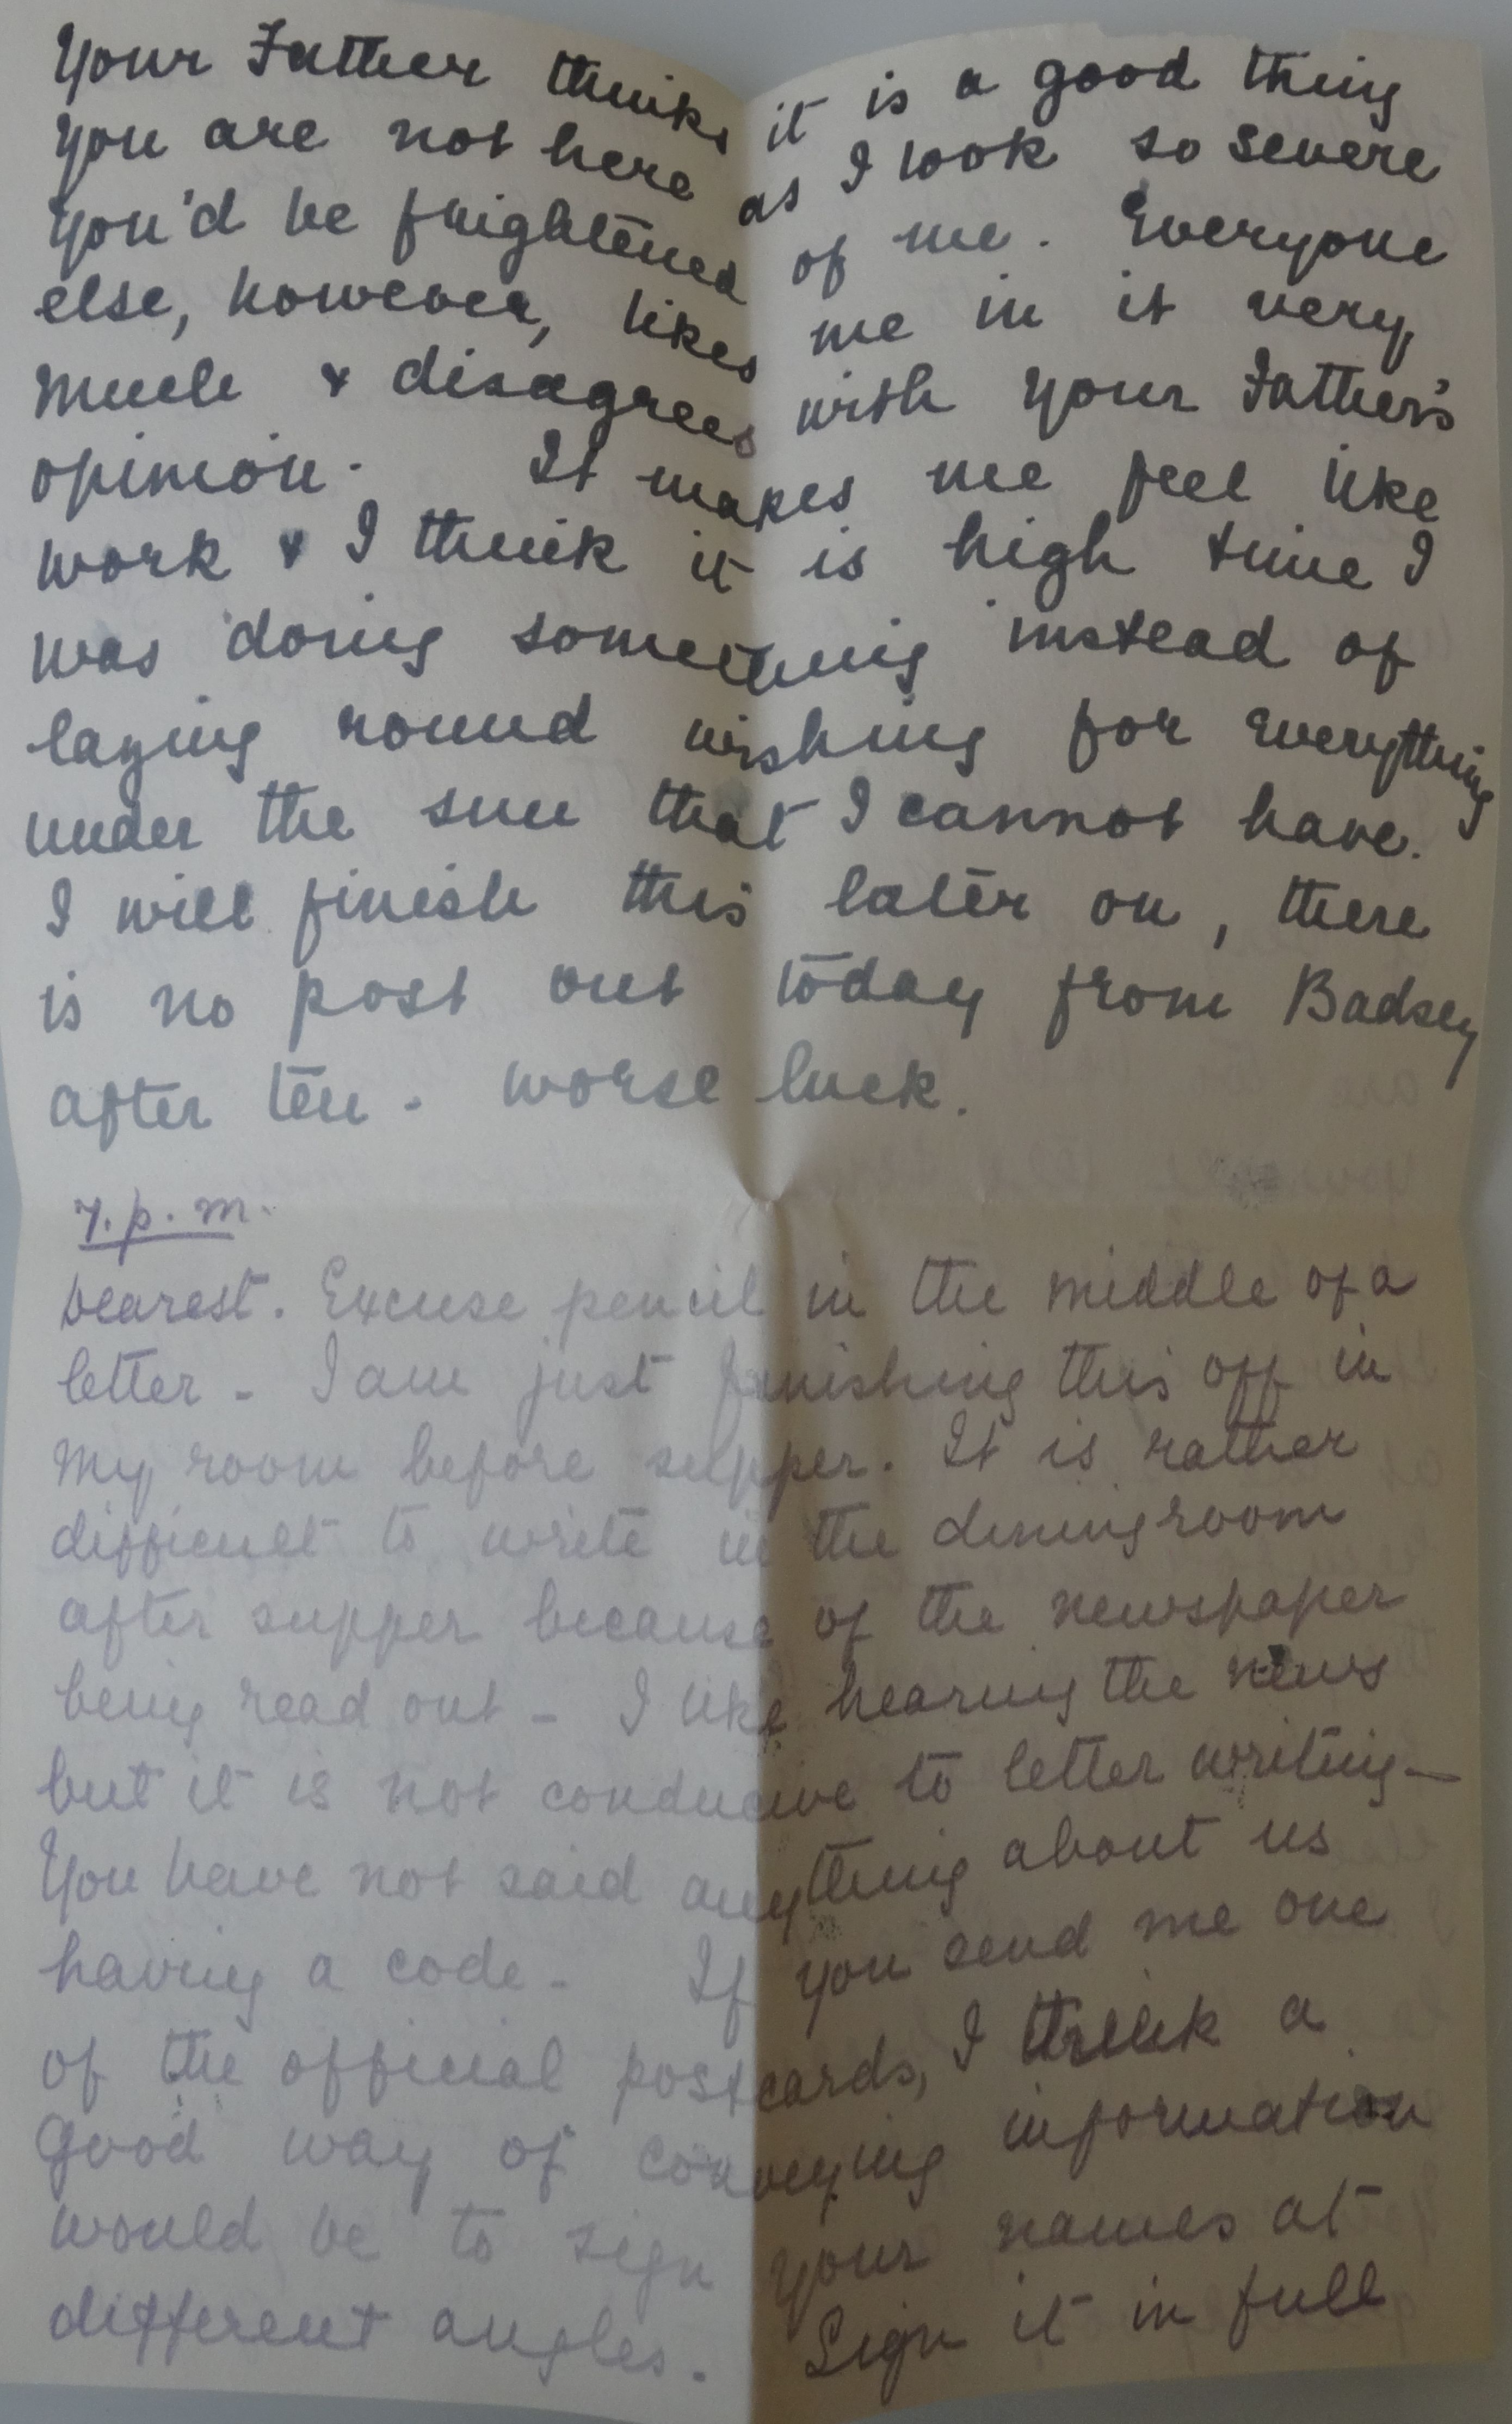 Your Father thinks it is a good thing
you are not here as I look so severe
you'd be frightened of me. Everyone
else, however, likes me in it very
much & disagrees with your Father's
opinion. It makes me feel like
work & I think it is high time I
was doing something instead of
lazing round wishing for everything
under the sun that I cannot have.
I will finish this later on, there
is no post out today from Badsey
after ten - worse luck.
7. p. m.
Dearest. Excuse pencil in the middle of a
letter - I am just finishing this off in
my room before supper. It is rather
difficult to write in the diningroom
after supper because of the newspaper
being read out - I like hearing the news
but it is not conducive to letter writing -
You have not said anything about us
having a code - If you send me one
of the official postcards, I think a
good way of conveying information
would be to sign your names at
different angles. Sign it in full